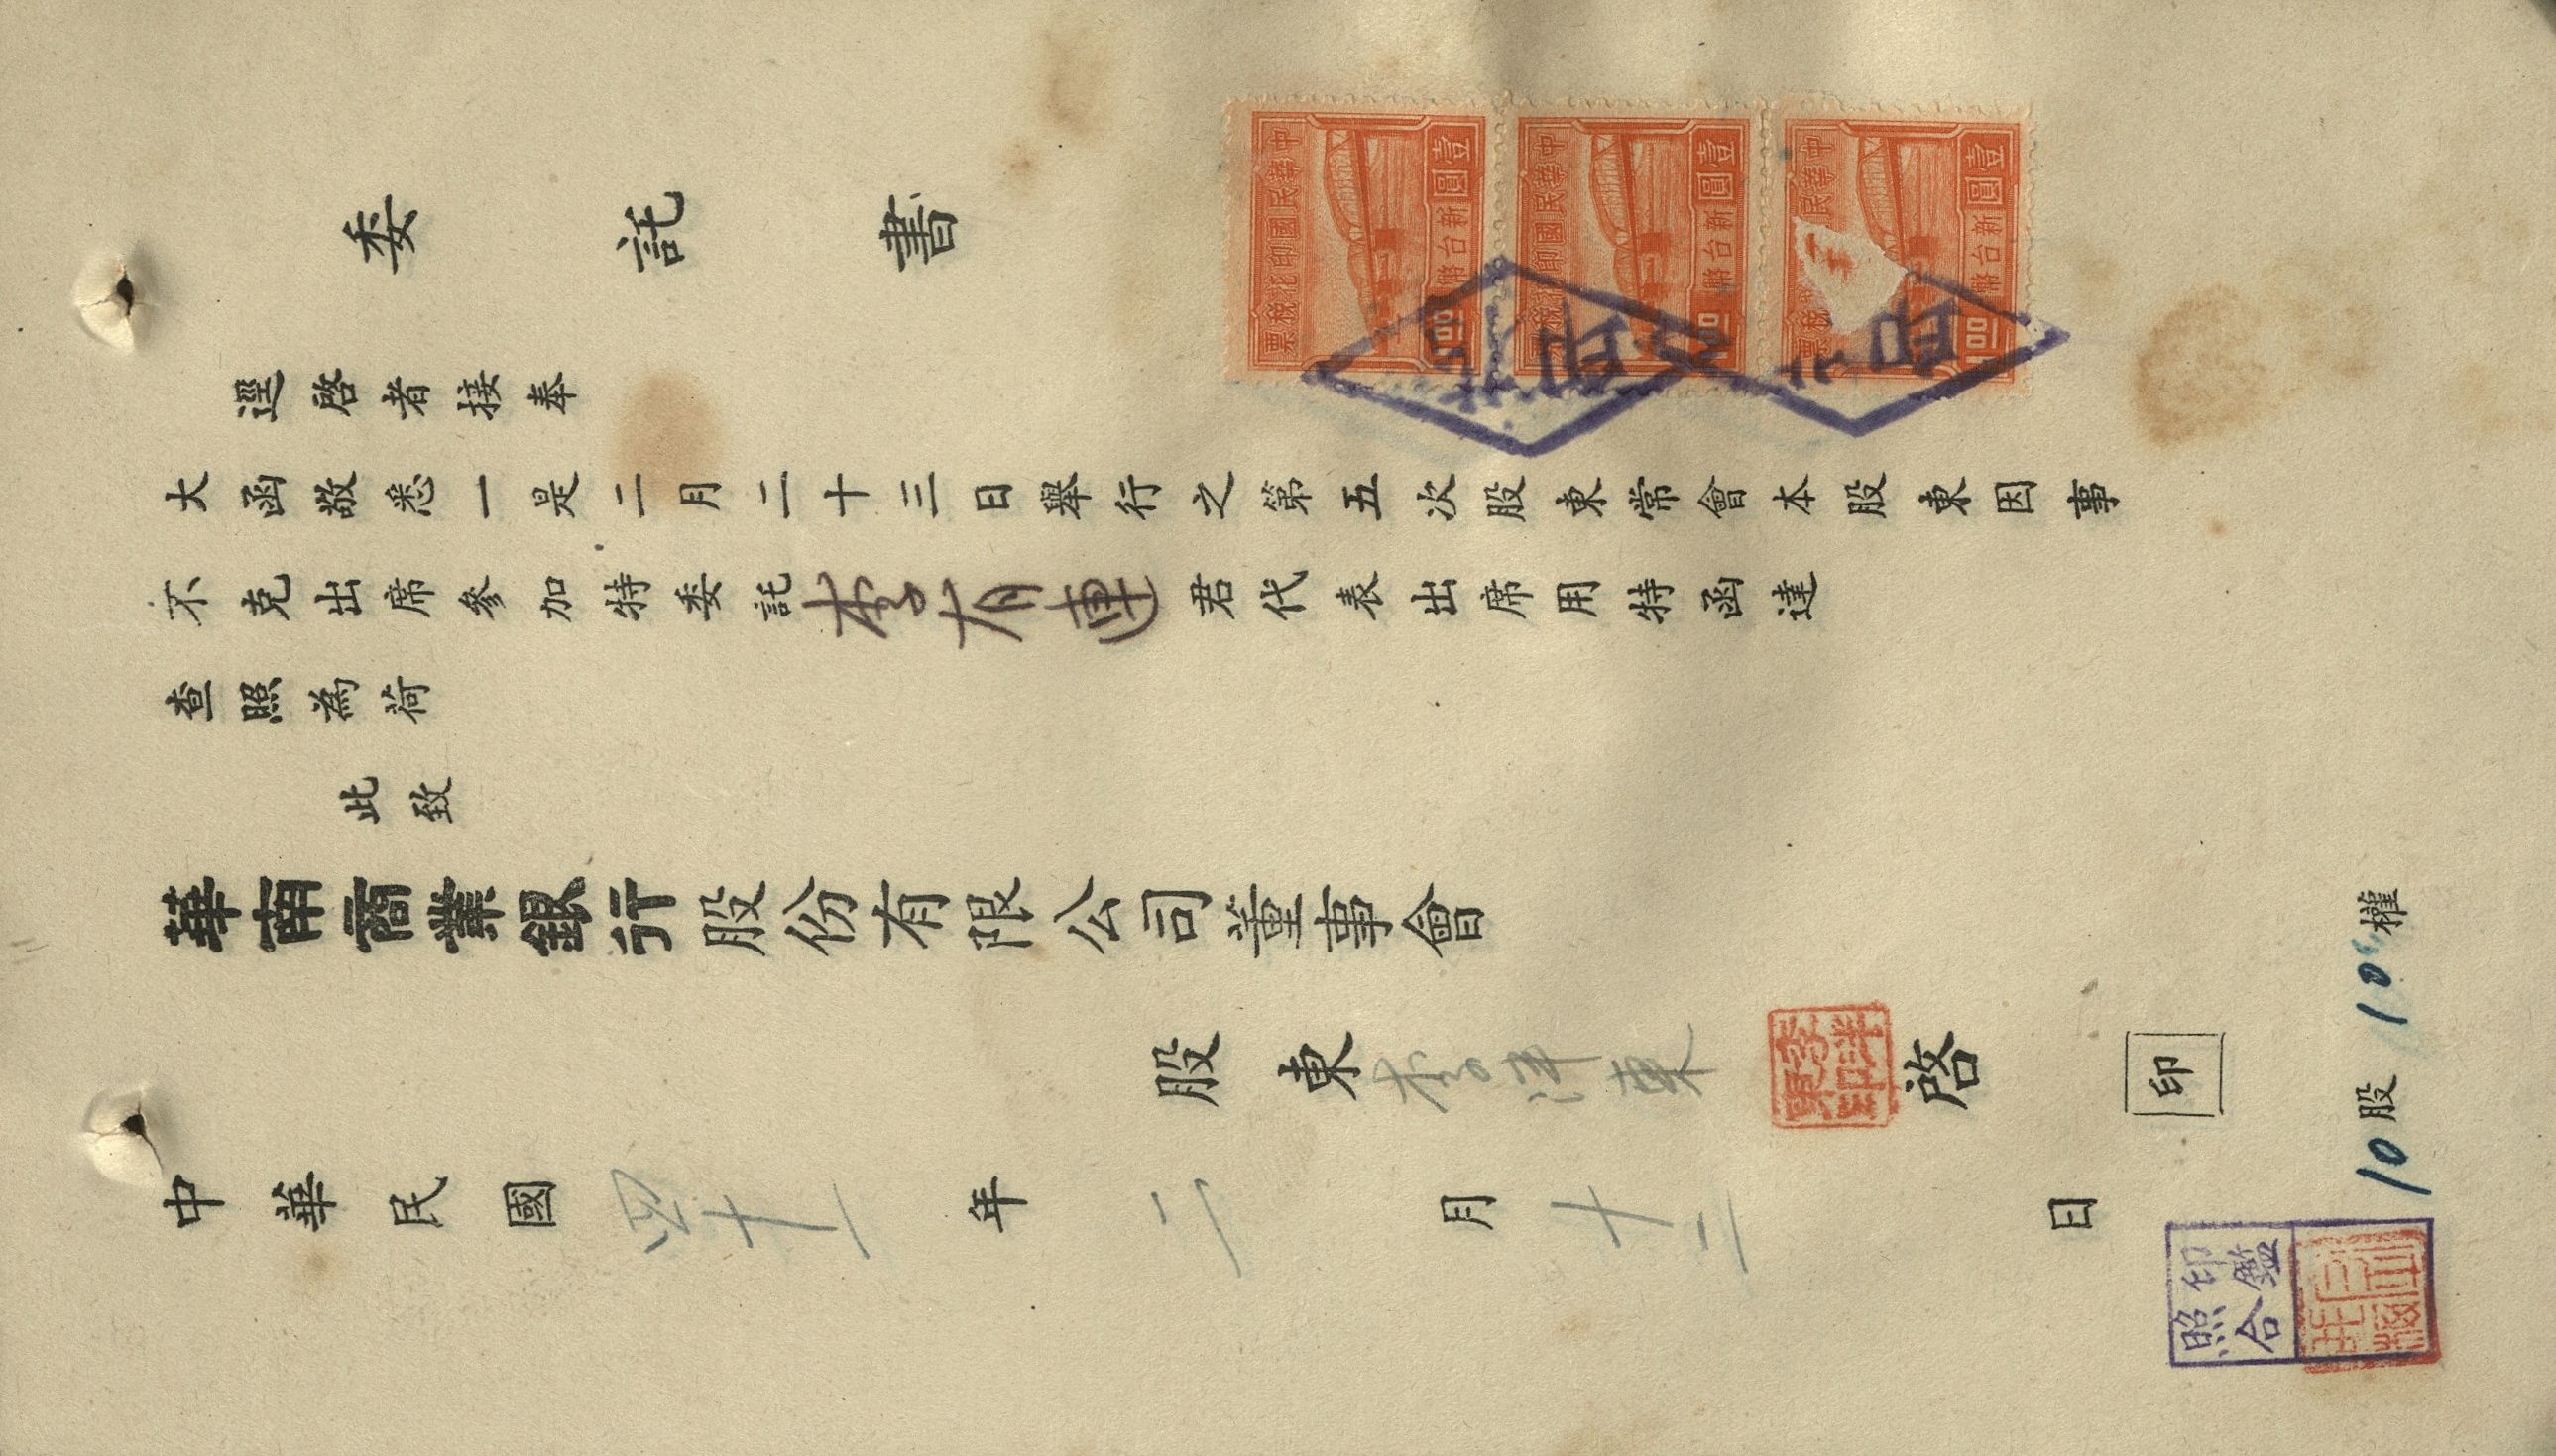 委託書
逕啓者接奉
大函敬悉一是二月二十三日舉行之第五次股東常會本股東因事
不克出席參加特委託李有連君代表出席用特函達
查照為荷
此致
華南商業銀行股份有限公司董事會
股東李泮東啓
印
中華民國四十一年二月十二日
10股 10權
印鑑照合
中華民國印花稅票
新台幣壹圓
1.00
中華民國印花稅票
新台幣壹圓
1.00
中華民
稅票
新台幣壹圓
1.00